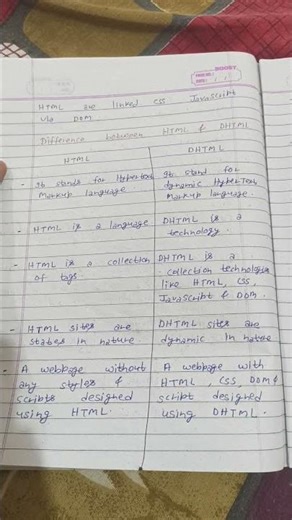 HTML are linked CSS JavaScript
via DOM
Difference between HTML & DHTML
HTML
DHTML
- It stands for HyperText
Markup language
It stand for
dynamic HyperText
Markup language.
- HTML is a language
DHTML is a
technology.
- HTML is a collection
of tags
DHTML is a
collection technologies
like HTML, CSS,
JavaScript & DOM.
- HTML sites are
states in nature
DHTML sites are
dynamic in nature
- A webpage without
any styles &
scripts designed
using HTML.
A webpage with
HTML, CSS, DOM &
script designed
using DHTML.